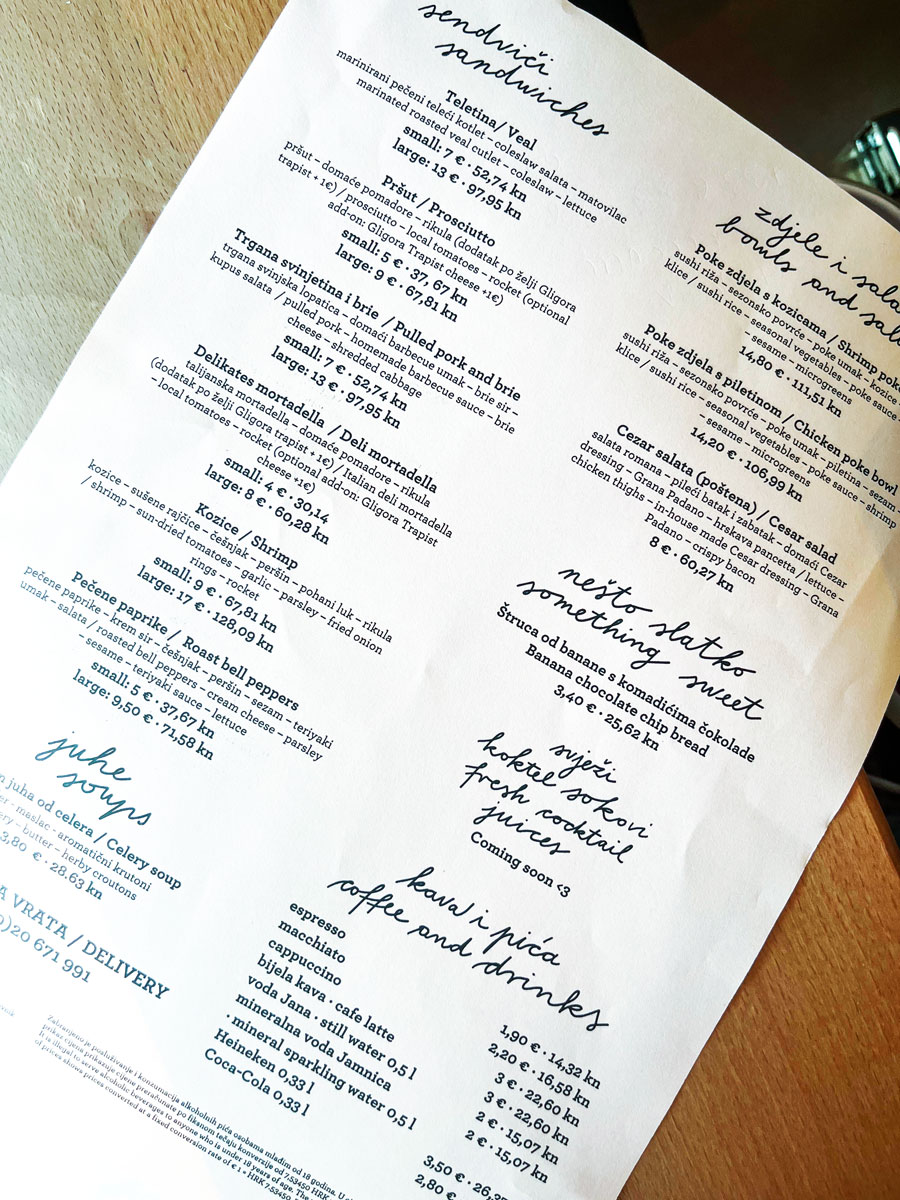 sendviči
sandwiches
Teletina/ Veal
marinirani pečeni teleći kotlet – coleslaw salata – matovilac
marinated roasted veal cutlet – coleslaw – lettuce
small: 7 € · 52,74 kn
large: 13 € · 97,95 kn
Pršut / Prosciutto
pršut – domaće pomadore – rikula (dodatak po želji Gligora
trapist + 1€) / prosciutto – local tomatoes – rocket (optional
add-on: Gligora Trapist cheese +1€)
small: 5 € · 37, 67 kn
large: 9 € · 67,81 kn
Trgana svinjetina i brie / Pulled pork and brie
trgana svinjska lopatica – domaći barbecue umak – brie sir –
kupus salata / pulled pork – homemade barbecue sauce – brie
cheese – shredded cabbage
small: 7 € · 52,74 kn
large: 13 € · 97,95 kn
Delikates mortadella / Deli mortadella
talijanska mortadella – domaće pomadore – rikula
(dodatak po želji Gligora trapist + 1€) / Italian deli mortadella
– local tomatoes – rocket (optional add-on: Gligora Trapist
cheese +1€)
small: 4 € · 30,14
large: 8 € · 60,28 kn
Kozice / Shrimp
kozice – sušene rajčice – češnjak – peršin – pohani luk – rikula
/ shrimp – sun-dried tomatoes – garlic – parsley – fried onion
rings – rocket
small: 9 € · 67,81 kn
large: 17 € · 128,09 kn
Pečene paprike / Roast bell peppers
pečene paprike – krem sir – češnjak – peršin – sezam – teriyaki
umak – salata / roasted bell peppers – cream cheese – parsley
– sesame – teriyaki sauce – lettuce
small: 5 € · 37,67 kn
large: 9,50 € · 71,58 kn
juhe
soups
juha od celera / Celery soup
maslac – aromatični krutoni
butter – herby croutons
3,80 € · 28.63 kn
VRATA / DELIVERY
)20 671 991
zdjele i
bowls and
Poke zdjela s kozicama / Shrimp poke
sushi riža – sezonsko povrće – poke umak – kozice –
klice / sushi rice – seasonal vegetables – poke sauce – shrimp
– sesame – microgreens
14,80 € · 111,51 kn
Poke zdjela s piletinom / Chicken poke bowl
sushi riža – sezonsko povrće – poke umak – piletina – sezam –
klice / sushi rice – seasonal vegetables – poke sauce – shrimp
– sesame – microgreens
14,20 € · 106,99 kn
Cezar salata (poštena) / Cesar salad
salata romana – pileći batak i zabatak – domaći Cezar
dressing – Grana Padano – hrskava pancetta / lettuce –
chicken thighs – in-house made Cesar dressing – Grana
Padano – crispy bacon
8 € · 60,27 kn
nešto slatko
something sweet
Štruca od banane s komadićima čokolade
Banana chocolate chip bread
3,40 € · 25,62 kn
svježi
koktel sokovi
fresh cocktail
juices
Coming soon <3
kava i pića
coffee and drinks
espresso 1,90 € · 14,32 kn
macchiato 2,20 € · 16,58 kn
cappuccino 3 € · 22,60 kn
bijela kava · cafe latte 3 € · 22,60 kn
voda Jana · still water 0,5 l 2 € · 15,07 kn
mineralna voda Jamnica
· mineral sparkling water 0,5 l 2 € · 15,07 kn
Heineken 0,33 l 3,50 €
Coca-Cola 0,33 l 2,80
Zabranjeno je posluživanje i konzumacija alkoholnih pića osobama mlađim od 18 godina.
prikaz cijena prikazuje cijene preračunate po fiksnom tečaju konverzije od 7.53450 HRK
It is illegal to serve alcoholic beverages to anyone who is under 18 years of age. The
of prices shows prices converted at a fixed conversion rate of € 1 = HRK 7.53450.